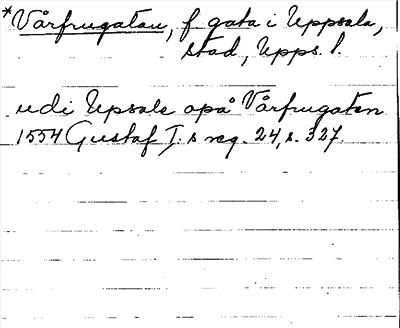 *Vårfrugatan, f. gata i Uppsala,
stad, Upps. l.
udi Upsala opå Vårfrugaten
1554 Gustaf I:s reg. 24, s. 327.